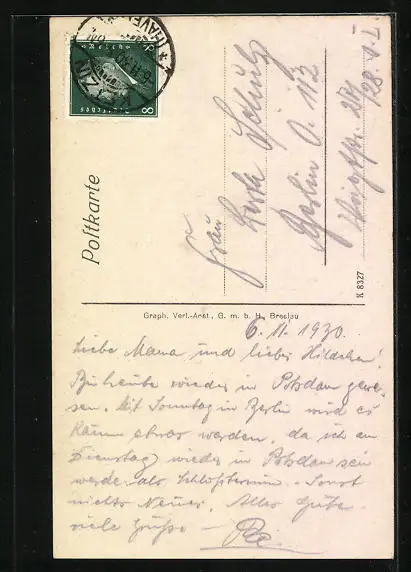 Postkarte
Frau
Schulz
Berlin O. 112
Graph. Verl.-Anst., G. m. b. H., Breslau
K 8327
6. 11. 1930.
Liebe Mama und liebes Hildchen!
Bin heute wieder in Potsdam gewe-
sen. Mit Sonntag in Berlin wird es
kaum etwas werden, da ich am
Dienstag wieder in Potsdam sein
werde als. Sonst
nichts Neues. Alles Gute.
viele Grüsse –